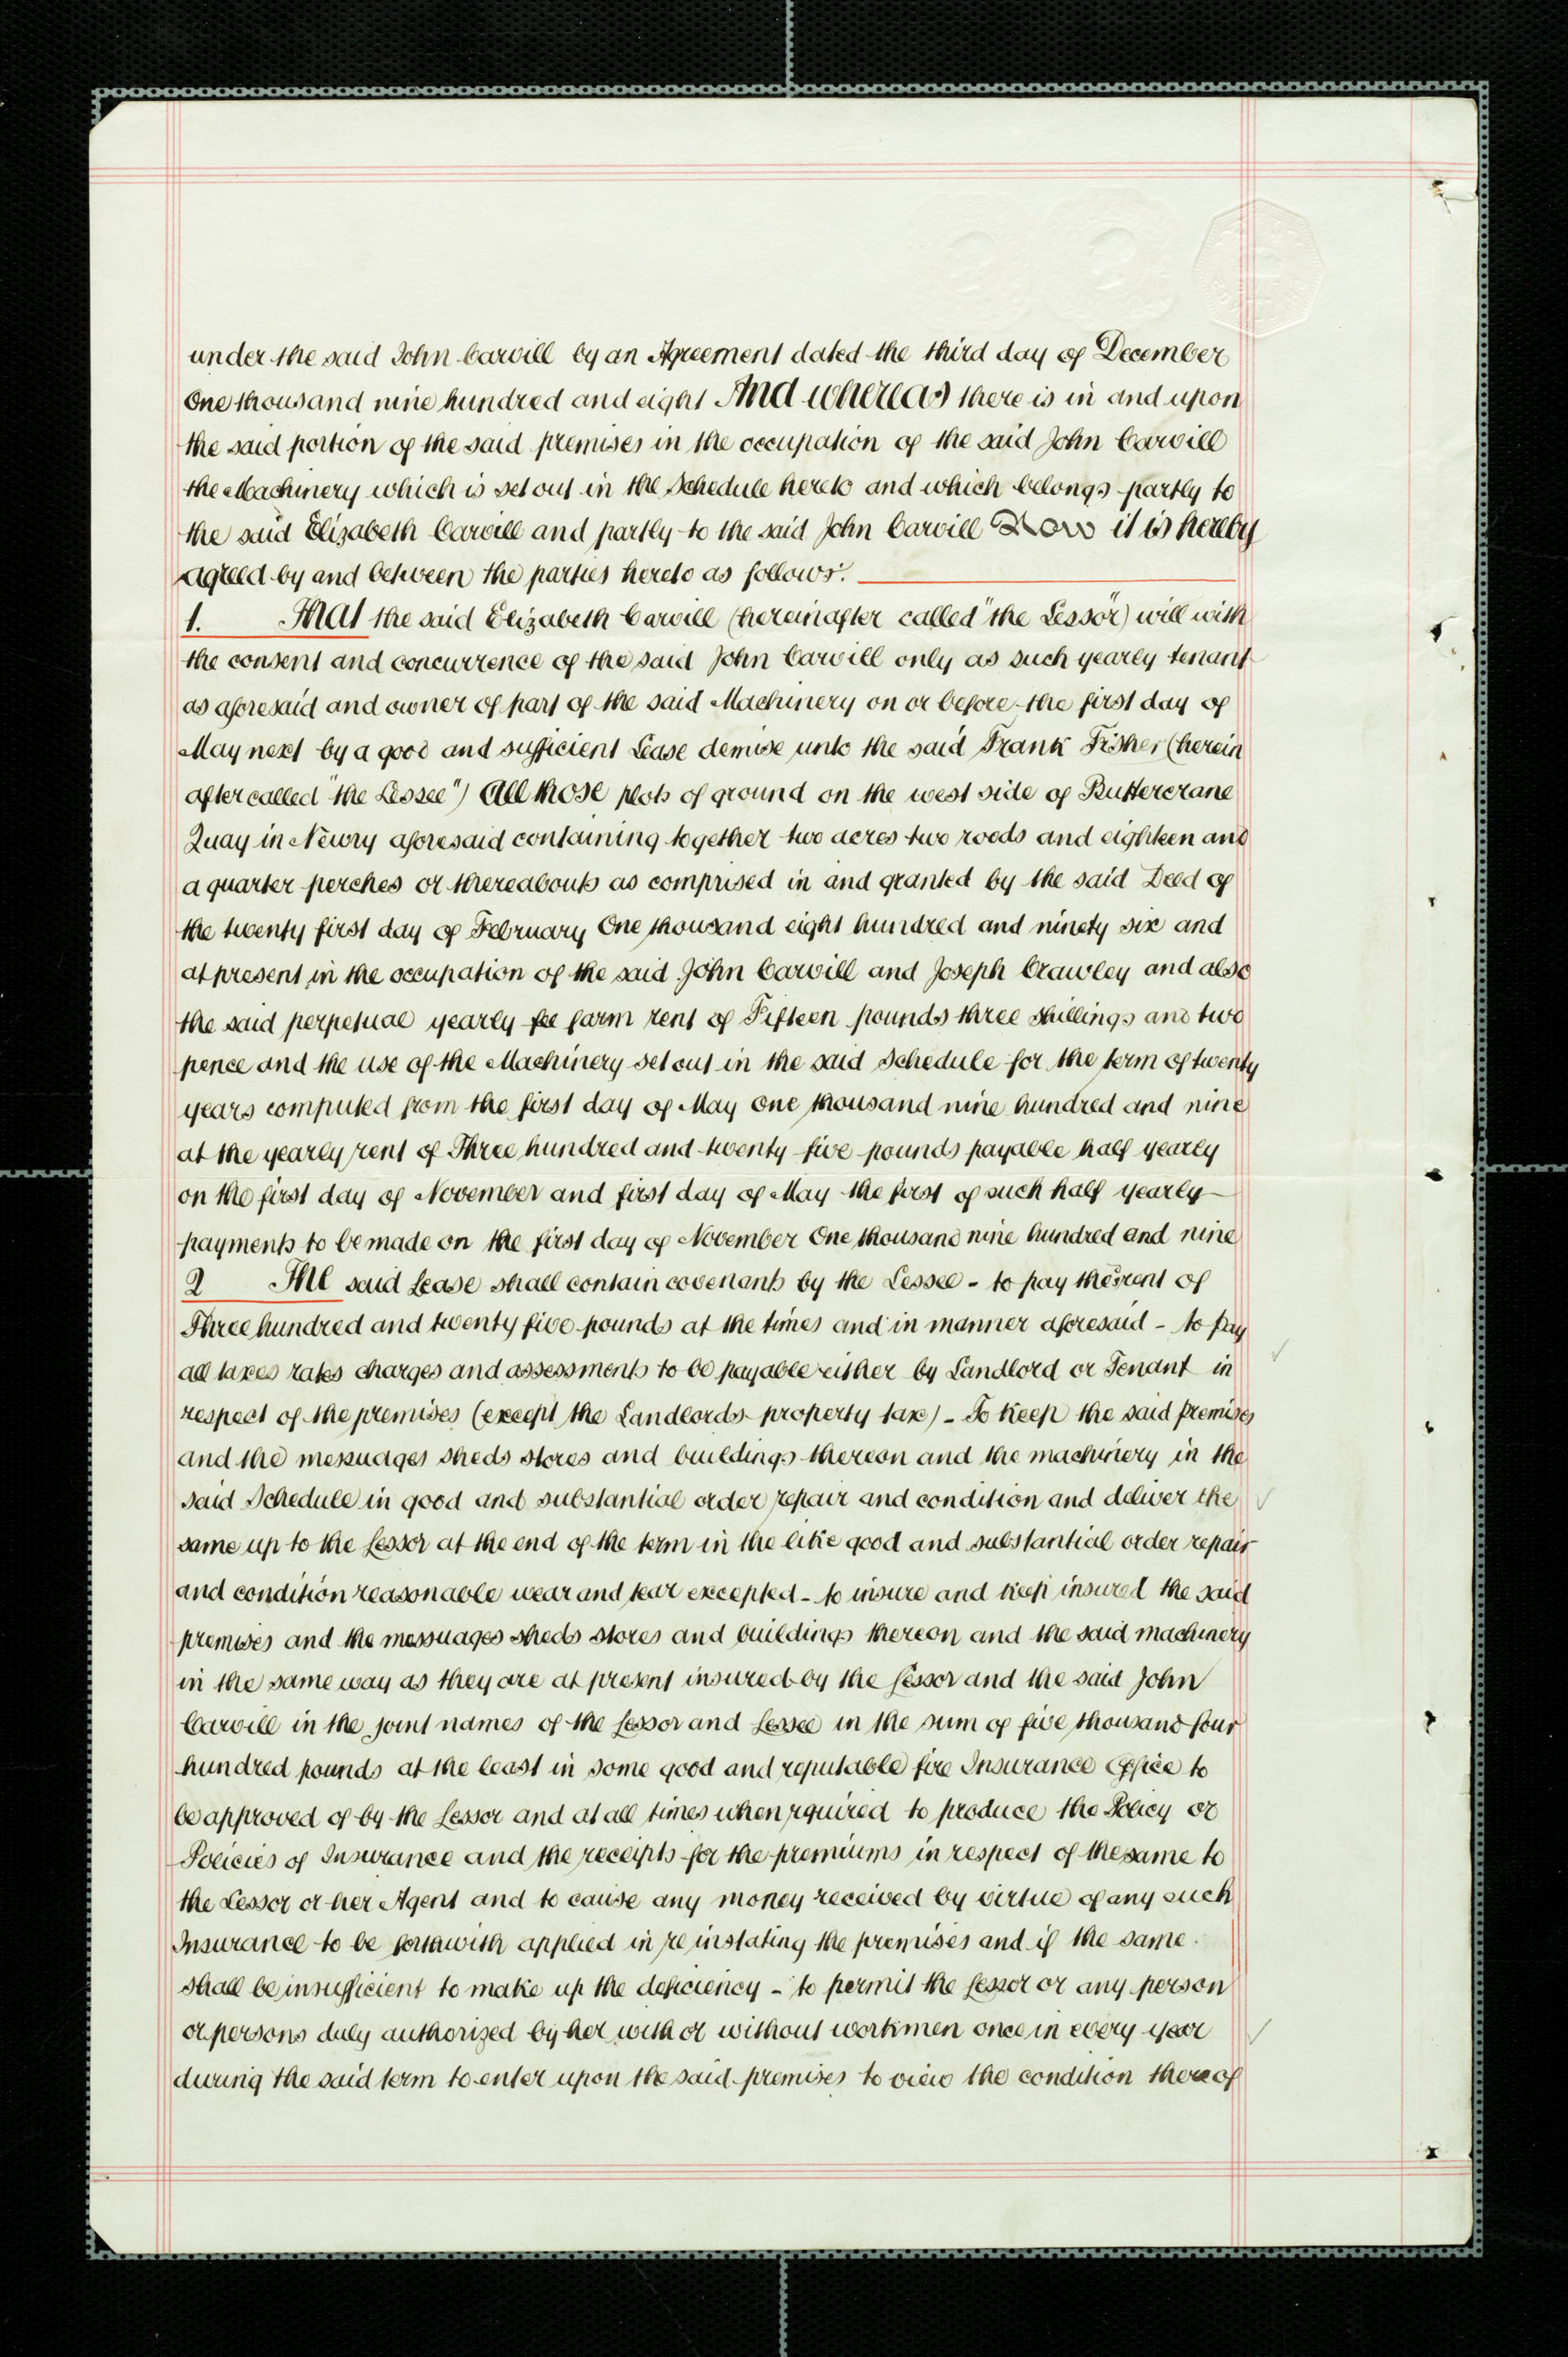 under the said John Carvill by an Agreement dated the third day of December
One thousand nine hundred and eight And whereas there is in and upon
the said portion of the said premises in the occupation of the said John Carvill
the Machinery which is set out in the Schedule hereto and which belongs partly to
the said Elizabeth Carvill and partly to the said John Carvill Now it is hereby
agreed by and between the parties hereto as follows:
1. That the said Elizabeth Carvill (hereinafter called "the Lessor") will with
the consent and concurrence of the said John Carvill only as such yearly tenant
as aforesaid and owner of part of the said Machinery on or before the first day of
May next by a good and sufficient Lease demise unto the said Frank Fisher (herein
after called "the Lessee") All those plots of ground on the west side of Buttercrane
Quay in Newry aforesaid containing together two acres two roods and eighteen and
a quarter perches or thereabouts as comprised in and granted by the said Deed of
the twenty first day of February One thousand eight hundred and ninety six and
at present in the occupation of the said John Carvill and Joseph Crawley and also
the said perpetual yearly fee farm rent of Fifteen pounds three shillings and two
pence and the use of the Machinery set out in the said Schedule for the term of twenty
years computed from the first day of May One thousand nine hundred and nine
at the yearly rent of Three hundred and twenty five pounds payable half yearly
on the first day of November and first day of May the first of such half yearly
payments to be made on the first day of November One thousand nine hundred and nine
2 The said Lease shall contain covenants by the Lessee - to pay the rent of
Three hundred and twenty five pounds at the times and in manner aforesaid - to pay
all taxes rates charges and assessments to be payable either by Landlord or Tenant in
respect of the premises (except the Landlords property tax) - To keep the said premises
and the messuages sheds stores and buildings thereon and the machinery in the
said Schedule in good and substantial order repair and condition and deliver the
same up to the Lessor at the end of the term in the like good and substantial order repair
and condition reasonable wear and tear excepted - to insure and keep insured the said
premises and the messuages sheds stores and buildings thereon and the said machinery
in the same way as they are at present insured by the Lessor and the said John
Carvill in the joint names of the Lessor and Lessee in the sum of five thousand four
hundred pounds at the least in some good and reputable fire Insurance Office to
be approved of by the Lessor and at all times when rquired to produce the Policy or
Policies of Insurance and the receipts for the premiums in respect of the same to
the Lessor or her Agent and to cause any money received by virtue of any such
Insurance to be forthwith applied in re instating the premises and if the same
shall be insufficient to make up the deficiency - to permit the Lessor or any person
or persons duly authorized by her with or without workmen once in every year
during the said term to enter upon the said premises to view the condition thereof